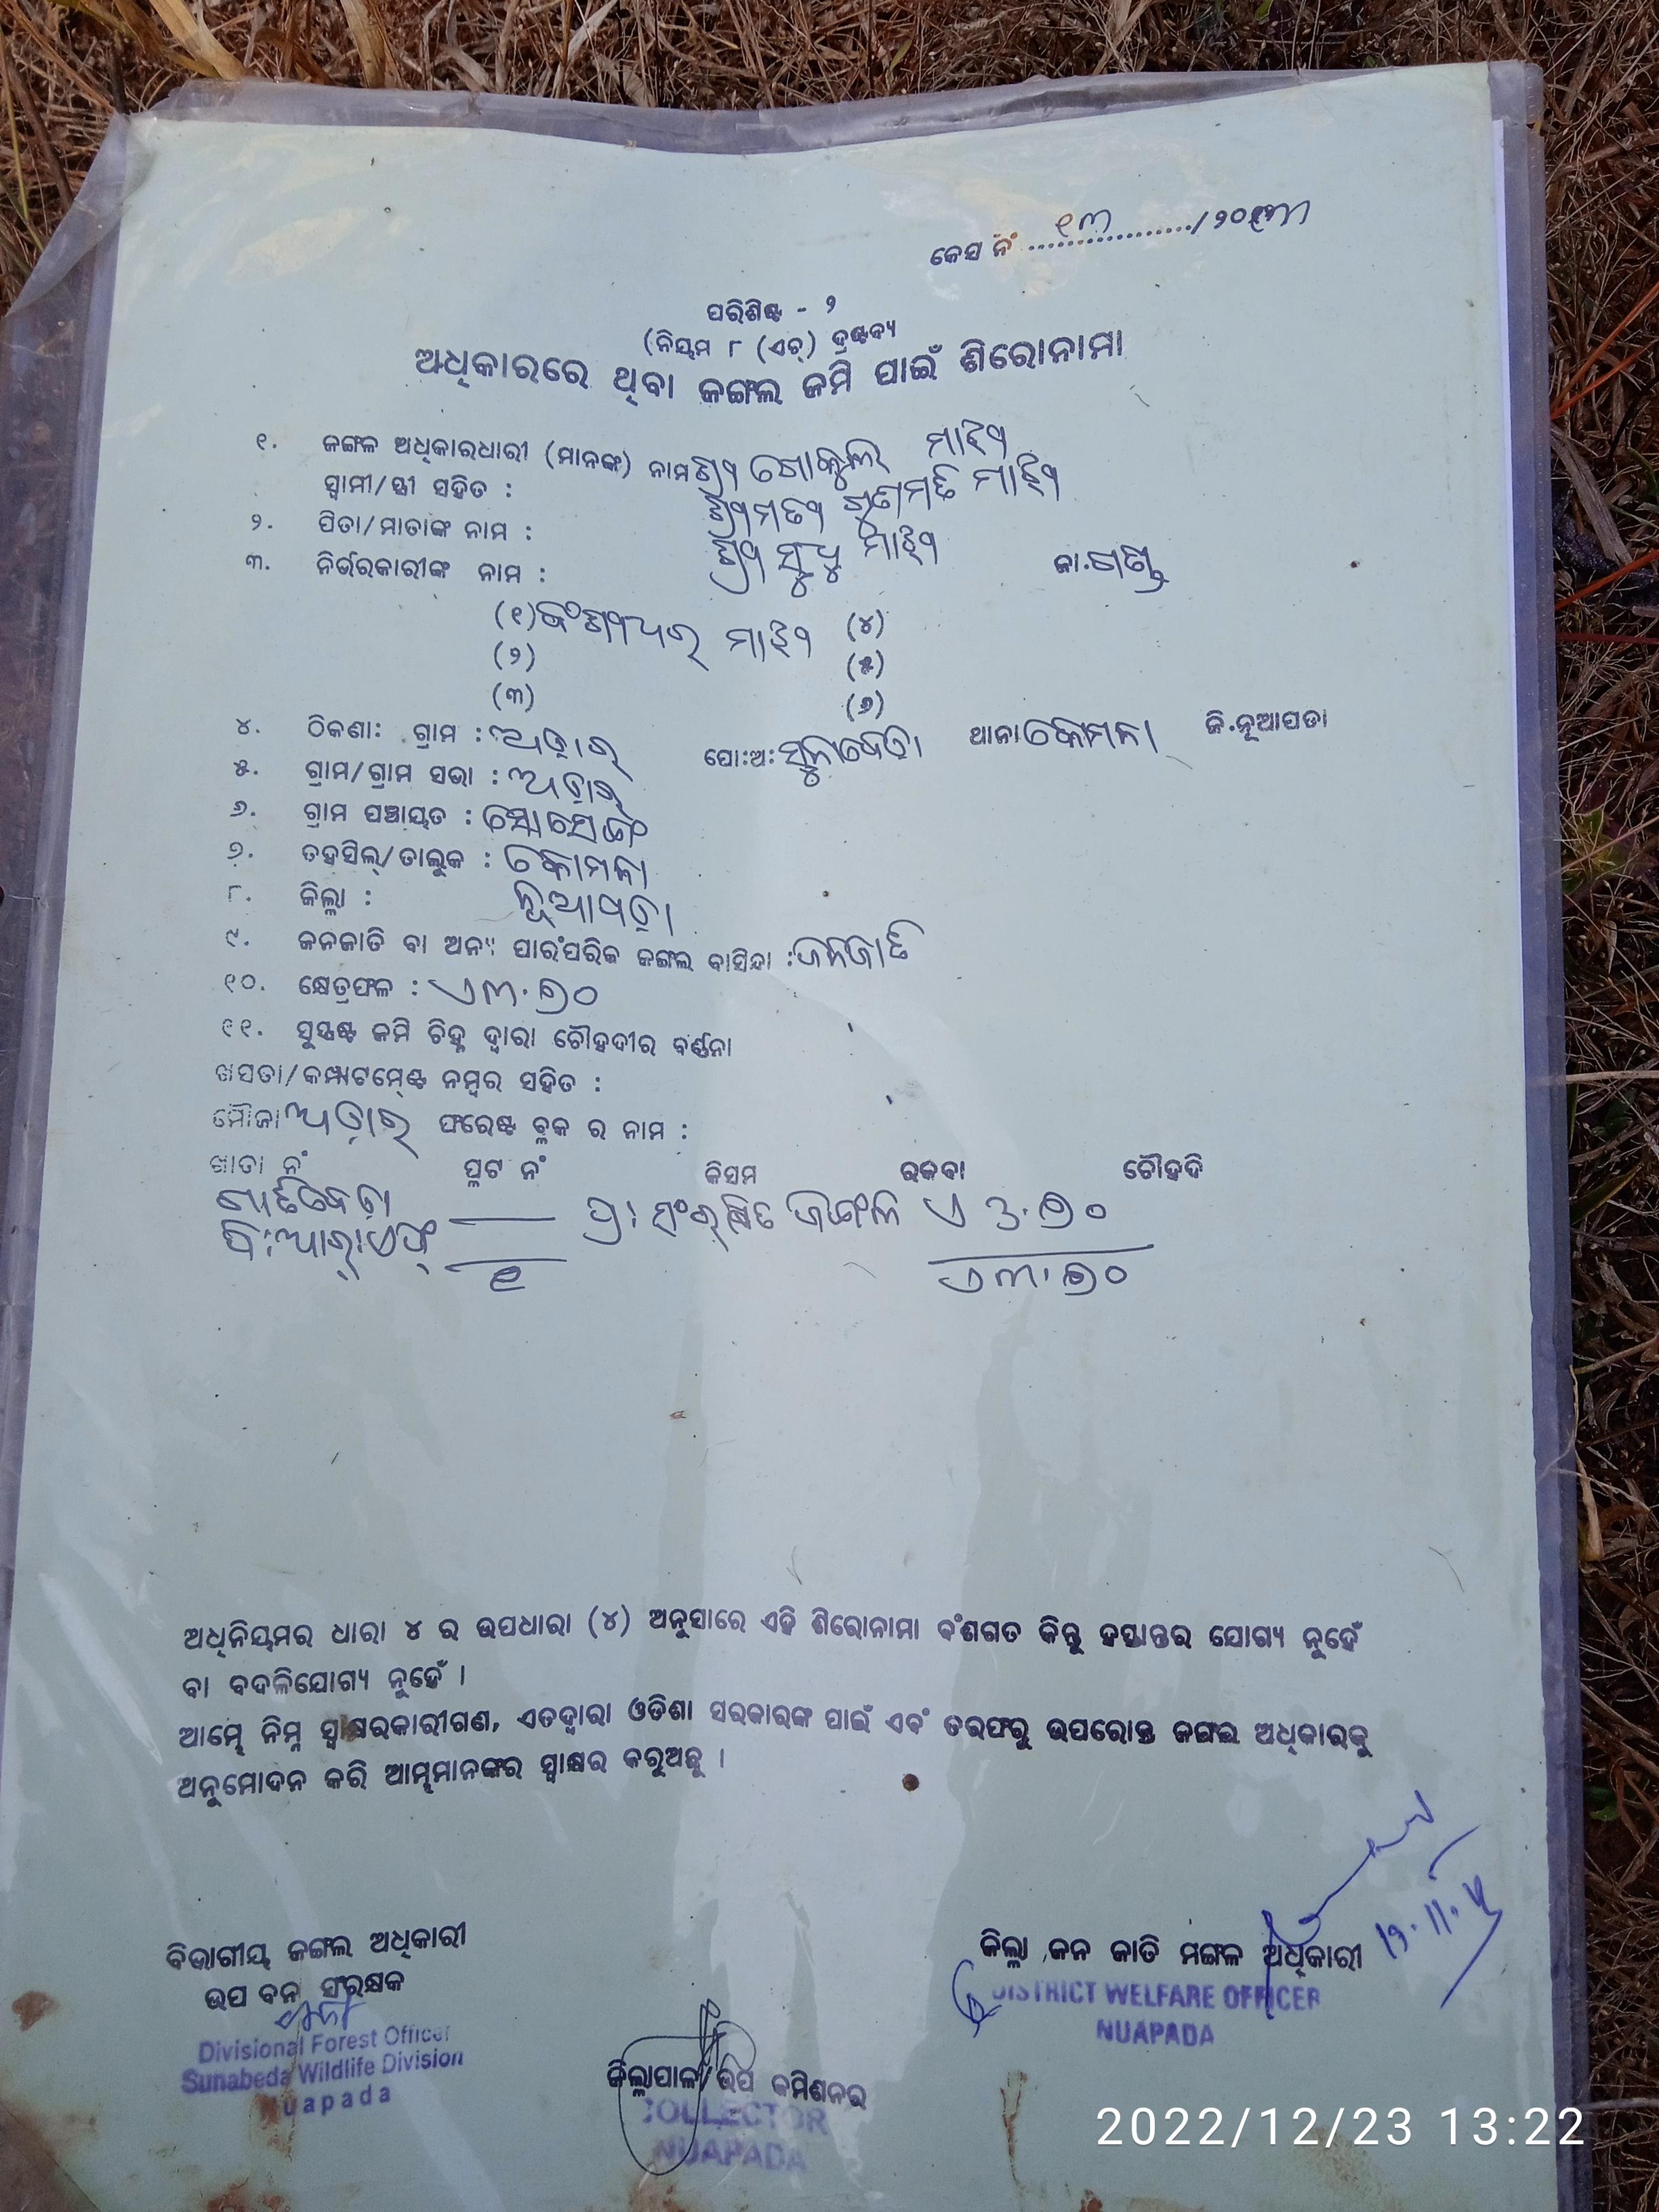 କେସ ନଂ ୧୩ /୨୦
ପରିଶିଷ୍ଟ - ୨
(ନିୟମ ୮ (ଏଚ୍) ଦ୍ରଷ୍ଟବ୍ୟ
ଅଧିକାରରେ ଥିବା ଜଙ୍ଗଲ ଜମି ପାଇଁ ଶିରୋନାମା
୧. ଜଙ୍ଗଳ ଅଧିକାରଧାରୀ (ମାନଙ୍କ) ନାମ ଶ୍ରୀ ଗୋକୁଲ ମାଝି
ସ୍ୱାମୀ/ସ୍ତ୍ରୀ ସହିତ : ଶ୍ରୀମତୀ ଗୁଣମତି ମାଝି
୨. ପିତା/ମାତାଙ୍କ ନାମ : ଶ୍ରୀ ସୁଧୁ ମାଝି
୩. ନିର୍ଭରକାରୀଙ୍କ ନାମ : ଜା.ଗଣ୍ଡ
(୧) ମାଝି (୪)
(୨) (୫)
(୩) (୬)
୪. ଠିକଣା: ଗ୍ରାମ : ପୋ:ଅ: ସୁନାବେଡ଼ା ଥାନା କୋମନା ଜି.ନୂଆପଡା
୫. ଗ୍ରାମ/ଗ୍ରାମ ସଭା :
୬. ଗ୍ରାମ ପଞ୍ଚାୟତ :
୭. ତହସିଲ୍/ତାଲୁକ : କୋମନା
୮. ଜିଲ୍ଲା : ନୂଆପଡ଼ା
୯. ଜନଜାତି ବା ଅନ୍ୟ ପାରଂପରିକ ଜଙ୍ଗଲ ବାସିନ୍ଦା : ଜନଜାତି
୧୦. କ୍ଷେତ୍ରଫଳ : ଏ୩.୭୦
୧୧. ସୁସ୍ପଷ୍ଟ ଜମି ଚିହ୍ନ ଦ୍ୱାରା ଚୌହଦୀର ବର୍ଣ୍ଣନା
ଖସଡା/କମ୍ପାଟମେଣ୍ଟ ନମ୍ବର ସହିତ :
ମୌଜା ଫରେଷ୍ଟ ବ୍ଲକ ର ନାମ :
ଖାତା ନଂ ପ୍ଲଟ ନଂ କିସମ ରକବା ଚୌହଦି
ପ୍ର: ସଂରକ୍ଷିତ ଜଙ୍ଗଳ ଏ ୩.୭୦
୧ ଏ୩.୭୦
ଅଧିନିୟମର ଧାରା ୪ ର ଉପଧାରା (୪) ଅନୁସାରେ ଏହି ଶିରୋନାମା ବଂଶଗତ କିନ୍ତୁ ହସ୍ତାନ୍ତର ଯୋଗ୍ୟ ନୁହେଁ
ବା ବଦଳିଯୋଗ୍ୟ ନୁହେଁ ।
ଆମ୍ଭେ ନିମ୍ନ ସ୍ୱାକ୍ଷରକାରୀଗଣ, ଏତଦ୍ୱାରା ଓଡିଶା ସରକାରଙ୍କ ପାଇଁ ଏବଂ ତରଫରୁ ଉପରୋକ୍ତ ଜଙ୍ଗଲ ଅଧିକାରକୁ
ଅନୁମୋଦନ କରି ଆମ୍ଭମାନଙ୍କର ସ୍ୱାକ୍ଷର କରୁଅଛୁ ।
ବିଭାଗୀୟ ଜଙ୍ଗଲ ଅଧିକାରୀ
ଉପ ବନ ସଂରକ୍ଷକ
Divisional Forest Officer
Sunabeda Wildlife Division
Nuapada
ଜିଲ୍ଲାପାଳ/ଉପ କମିଶନର
COLLECTOR
NUAPADA
ଜିଲ୍ଲା ଜନ ଜାତି ମଙ୍ଗଳ ଅଧିକାରୀ
DISTRICT WELFARE OFFICER
NUAPADA
2022/12/23 13:22